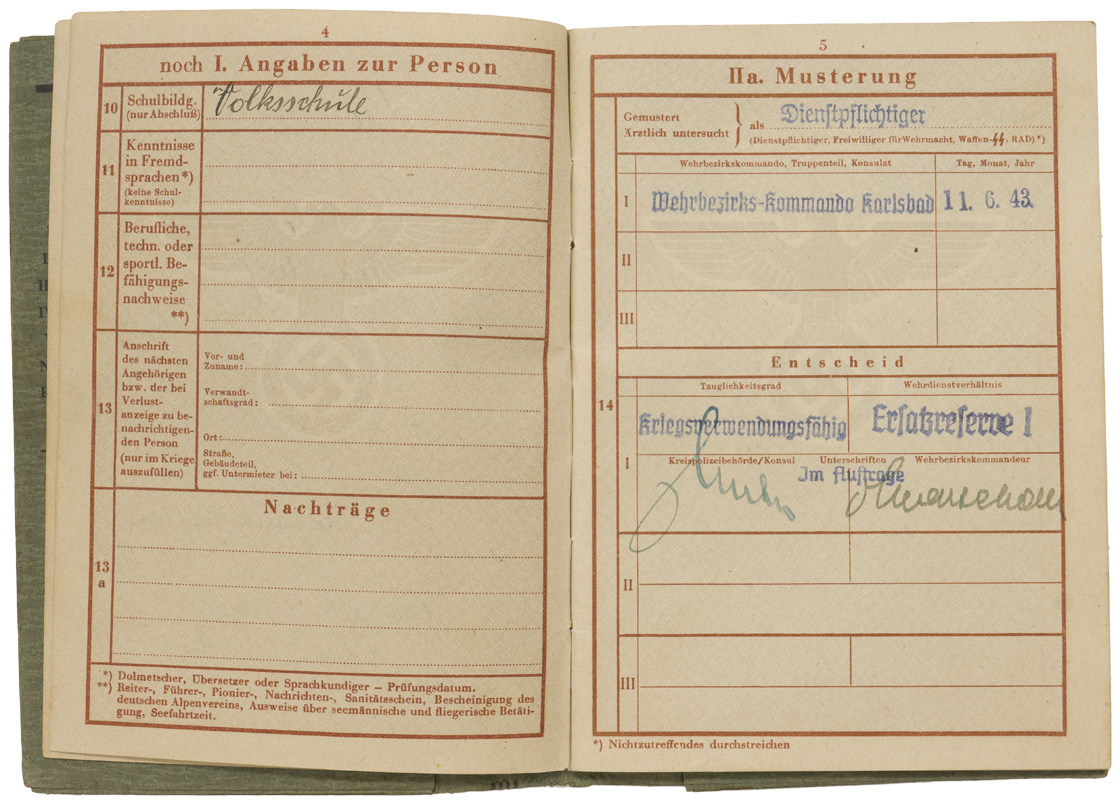 4
noch I. Angaben zur Person
10
Schulbildg.
(nur Abschluß)
Volksschule
11
Kenntnisse
in Fremd-
sprachen*)
(keine Schul-
kenntnisse)
12
Berufliche,
techn. oder
sportl. Be-
fähigungs-
nachweise
**)
13
Anschrift
des nächsten
Angehörigen
bzw. der bei
Verlust-
anzeige zu be-
nachrichtigen-
den Person
(nur im Kriege
auszufüllen)
Vor- und
Zuname:
Verwandt-
schaftsgrad:
Ort:
Straße,
Gebäudeteil,
ggf. Untermieter bei:
Nachträge
13
a
*) Dolmetscher, Übersetzer oder Sprachkundiger – Prüfungsdatum.
**) Reiter-, Führer-, Pionier-, Nachrichten-, Sanitätsschein, Bescheinigung des
deutschen Alpenvereins, Ausweise über seemännische und fliegerische Betäti-
gung, Seefahrtzeit.
5
IIa. Musterung
Gemustert
Ärztlich untersucht
als Dienstpflichtiger
(Dienstpflichtiger, Freiwilliger für Wehrmacht, Waffen-SS, RAD)*)
Wehrbezirkskommando, Truppenteil, Konsulat
Tag, Monat, Jahr
I
Wehrbezirks-Kommando Karlsbad
11. 6. 43.
II
III
Entscheid
14
Tauglichkeitsgrad
Wehrdienstverhältnis
Kriegsverwendungsfähig
Ersatzreserve I
I
Kreispolizeibehörde/Konsul
Unterschriften
Wehrbezirkskommandeur
Im Auftrage
II
III
*) Nichtzutreffendes durchstreichen